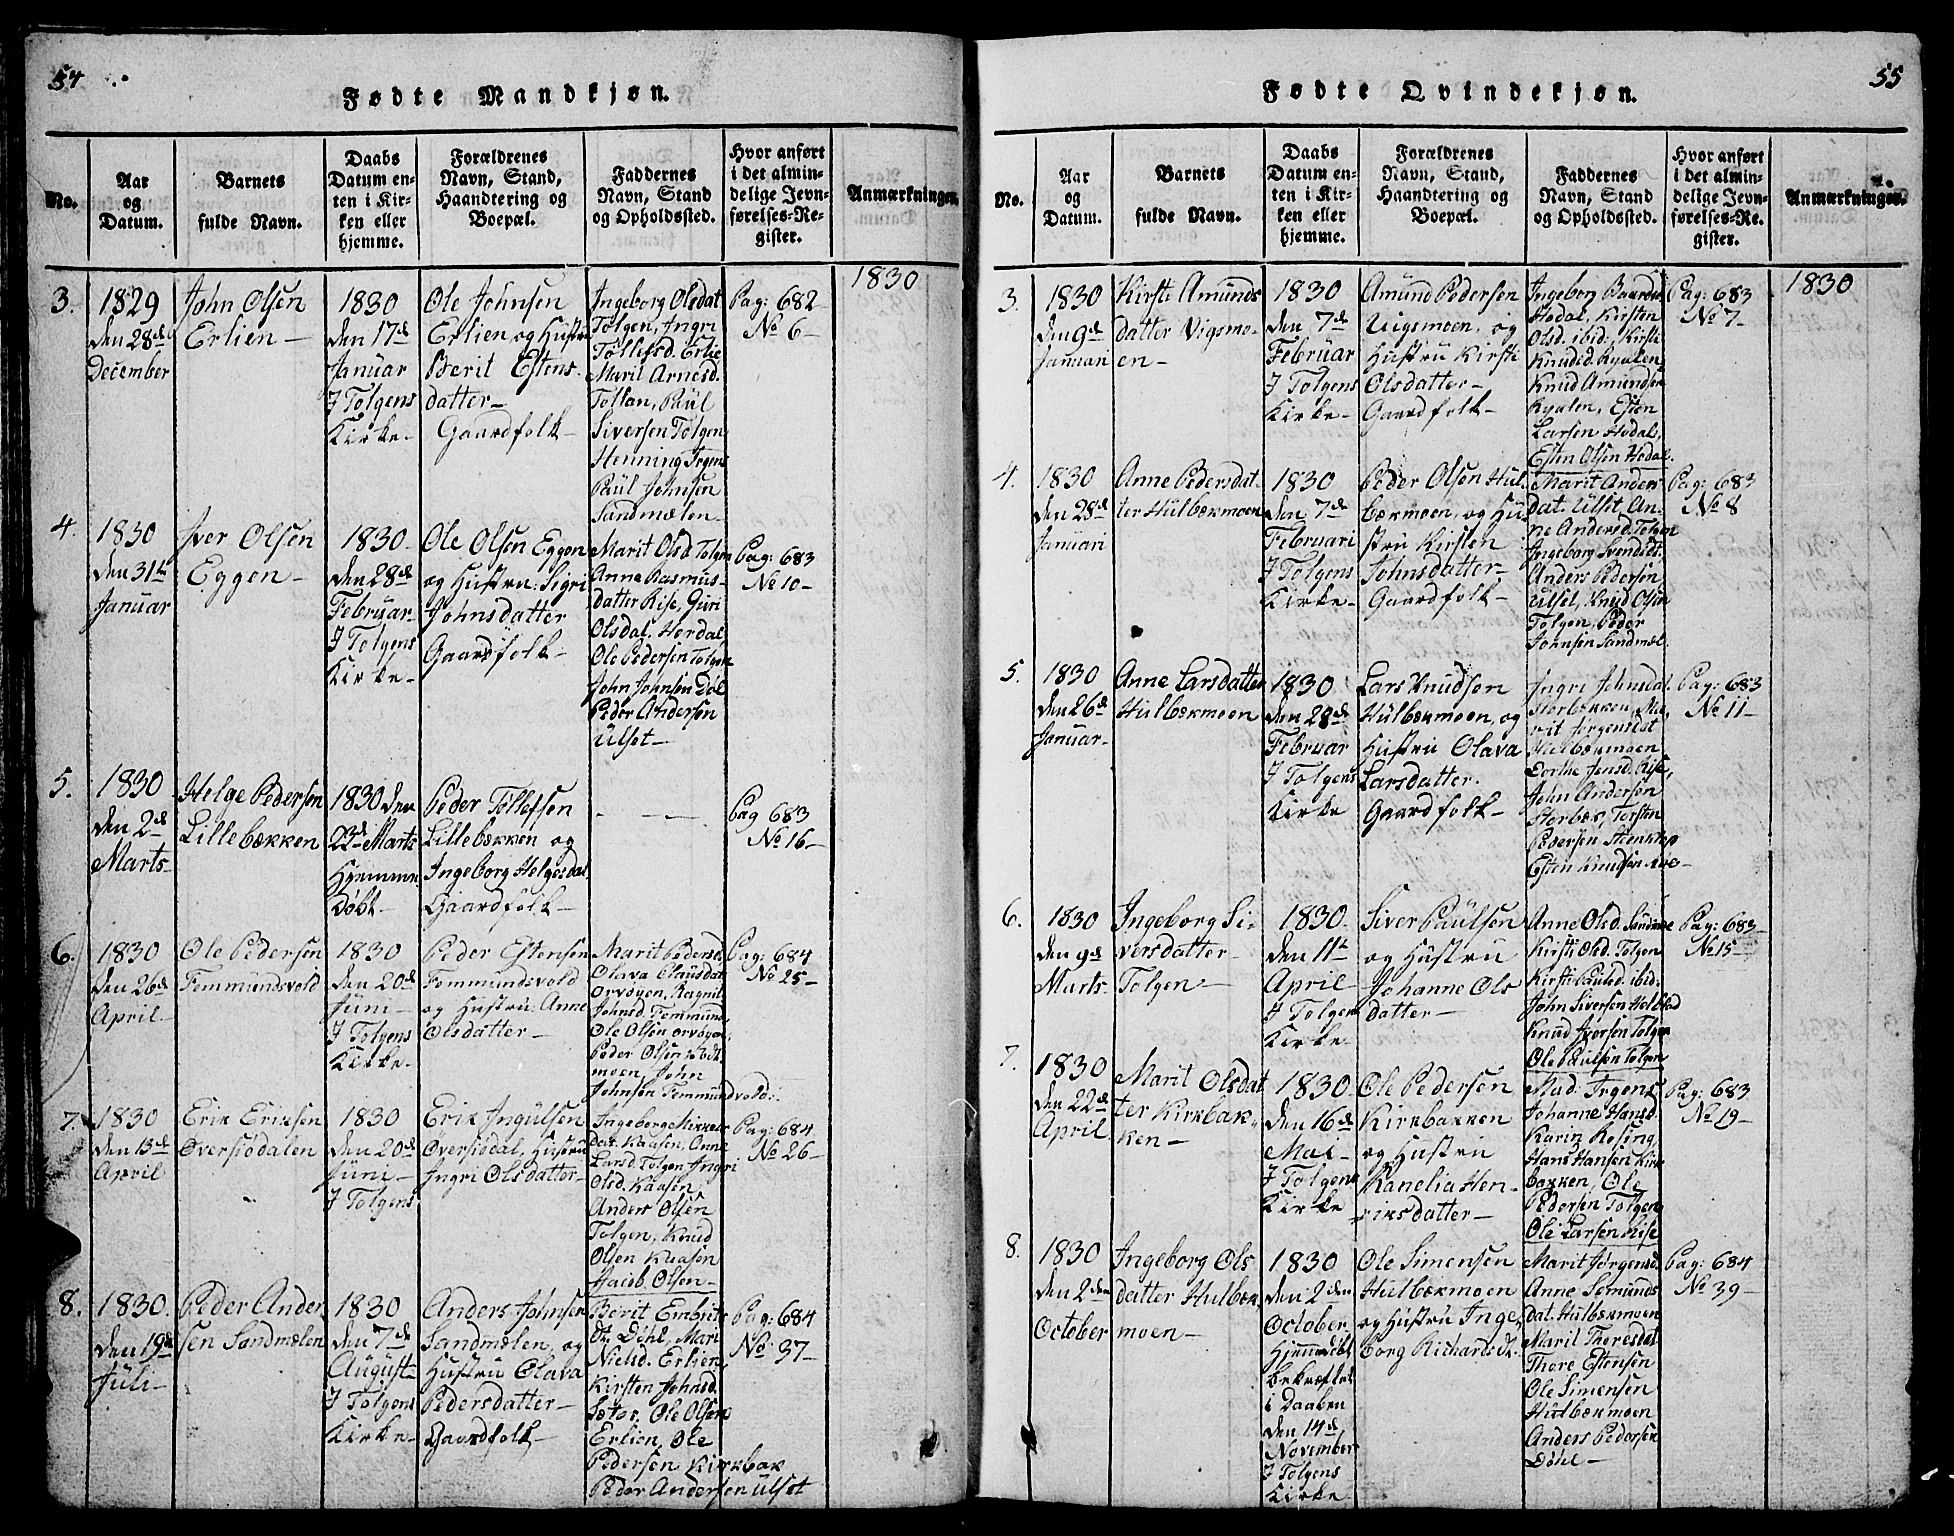 54
Fødte Mandkjøn.
No.
Aar
og
Datum.
Barnets
fulde Navn.
Daabs
Datum en-
ten i Kir-
ken eller
hjemme.
Forældrenes
Navn, Stand,
Haandtering og
Boepæl.
Faddernes
Navn, Stand
og Opholdssted.
Hvor anført
i det almin-
delige Jevn-
førelses-Re-
gister.
Anmærkninger.
1830
3.
1829
den 28de
December
John Olsen
Erlien
1830
den 17de
Januar
I Tolgens
Kirke
Ole Johnsen
Erlien og Hustru
Berit Estens
datter
Gaardfolk
Ingeborg Olsdat
Tolgen, Ingri
Tollefsd. Erlie
Marit Arnesd.
Tollan, Paul
Siversen Tolgen
Henning Irgens
Paul Johnsen
Sandmælen
Pag: 682
No 6
4.
1830
den 31te
Januar
Iver Olsen
Eggen
1830
den 28de
Februar
I Tolgens
Kirke
Ole Olsen Eggen
og Hustru: Sigri
Johnsdatter
Gaardfolk
Marit Olsd. Tolgen
Anne Rasmus-
datter Rise, Guri
Olsdat. Hordal
Ole Pedersen Tolgen
John Johnsen Døl
Peder Andersen
Ulset
Pag: 683
No 10
5.
1830
den 2de
Marts
Helge Pedersen
Lillebækken
1830 den
23de Marts
Hjemme
Døbt
Peder Tollefsen
Lillebækken og
Ingeborg Helgesdat
Gaardfolk
Pag 683
No 16
6.
1830
den 26de
April
Ole Pedersen
Femmundsvold
1830
den 20de
Juni
I Tolgens
Kirke
Peder Estensen
Femmundsvold
og Hustru: Anne
Olsdatter
Marit Pedersd.
Olava Clausdat
Orvøyen, Ragnil
Johnsd. Femmuns
Ole Olsen Orvøyen
Peder Olsen Rodt
moen, John
Johnsen Femmundvold:
Pag: 684
No 25
7.
1830
den 13de
April
Erik Eriksen
Øversiødalen
1830
den 20de
Juni
I Tolgens
Erik Ingulsen
Øversiødal, Hustru
Ingri Olsdatter
Ingeborg Mikkels
dat. Kaasen, Anne
Larsd. Tolgen Ingri
Olsd. Kaasen
Anders Olsen
Tolgen, Knud
Olsen Kaasen
Jacob Olsen
Pag: 684
No 26
8.
1830.
den 19de
Juli
Peder Ander
sen Sandmælen
1830
den 7de
August
I Tolgens
Kirke
Anders Johnsen
Sandmælen, og
Hustru Olava
Pedersdatter
Gaardfolk
Berit Embrits
dt. Døhl, Mari
Nielsd. Erlien
Kirsten Johnsd.
Sæter, Ole Olsen
Erlien, Ole
Pedersen Kirkbak
Peder Andersen Ulset
Pag: 684
No: 37
55
Fødte Qvindekjøn.
No.
Aar
og
Datum.
Barnets
fulde Navn.
Daabs
Datum en-
ten i Kir-
ken eller
hjemme.
Forældrenes
Navn, Stand,
Haandtering og
Boepæl.
Faddernes
Navn, Stand
og Opholdssted.
Hvor anført
i det almin-
delige Jevn-
førelses-Re-
gister.
Anmærkninger.
1830
3.
1830
den 9de
Januari
Kirsti Amunds
datter Vigsmo-
en
1830
den 7de
Februar
I Tolgens
Kirke
Amund Pedersen
Vigsmoen, og
Hustru Kirsti
Olsdatter
Gaardfolk
Ingeborg Baards
Hodal, Kirsten
Olsd. ibid:, Kirsti
Knudsd. Ryalen
Knud Amundsen
Ryalen, Esten
Larsen Hodal,
Esten Olsen Hodal.
Pag: 683
No 7
4.
1830
den 28de
Januari
Anne Pedersdat
ter Hulbækmoen
1830
den 7de
Februari
I Tolgens
Kirke
Peder Olsen Hul
bækmoen, og Hu
stru Kirsten
Johnsdatter
Gaardfolk
Marit Anders
dat. Ulset, An-
ne Andersd. Tolgen
Ingeborg Svendsdt.
Anders Pedersen
Ulset, Knud Olsen
Tolgen, Peder
Johnsen Sandmæl.
Pag: 683
No 8
5.
1830
den 26de
Januar
Anne Larsdatter
Hulbækmoen
1830
den 28de
Februar
I Tolgens
Kirke
Lars Knudsen
Hulbækmoen, og
Hustru Olava
Larsdatter.
Gaardfolk
Ingri Johnsdat.
Storbækken, Ma-
rit Jørgensdat
Hulbækmoen
Dorthe Jensd. Rise,
John Andersen
Storbæk, Torsten
Pedersen
Esten Knudsen
Pag: 683
No 11
6.
1830
den 9de
Marts
Ingeborg Si-
versdatter
Tolgen
1830.
den 11te
April
I Tolgen
Kirke
Siver Paulsen
og Hustru
Johanne Ols
datter
Anne Olsd. Sandmæ
Kirsti Olsd. Tolgen
Kirsti Paulsd. ibid:
John Siversen
Knud Iversen Tolgen
Ole Paulsen Tolgen
Pag: 683
No 15
7.
1830
den 22de
April
Marit Olsdat
ter Kirkbak-
ken
1830
den 16de
Mai
I Tolgens
Kirke
Ole Pedersen
Kirkbakken
og Hustru
Kanelia Hen-
riksdatter
Mad. Irgens
Johanne Hansd.
Karin Rosing,
Hans Hansen Kirk
bakken, Ole
Pedersen Tolgen
Ole Larsen Rise
Pag: 683
No 19
8.
1830
den 2den
October
Ingeborg Ols
datter Hulbæk
moen
1830
den 2den
October
Hjemmedøbt
bekræftet
i Daaben
den 14de
November
I Tolgens
Kirke
Ole Simensen
Hulbækmoen
og Hustru Inge
borg Richardsdt.
Marit Jørgensd.
Anne Semunds
dat. Hulbækmoen
Marit Thoresdat
Thore Estensen
Ole Simensen
Hulbækmoen
Anders Pedersen
Døhl
Pag: 684
No 39